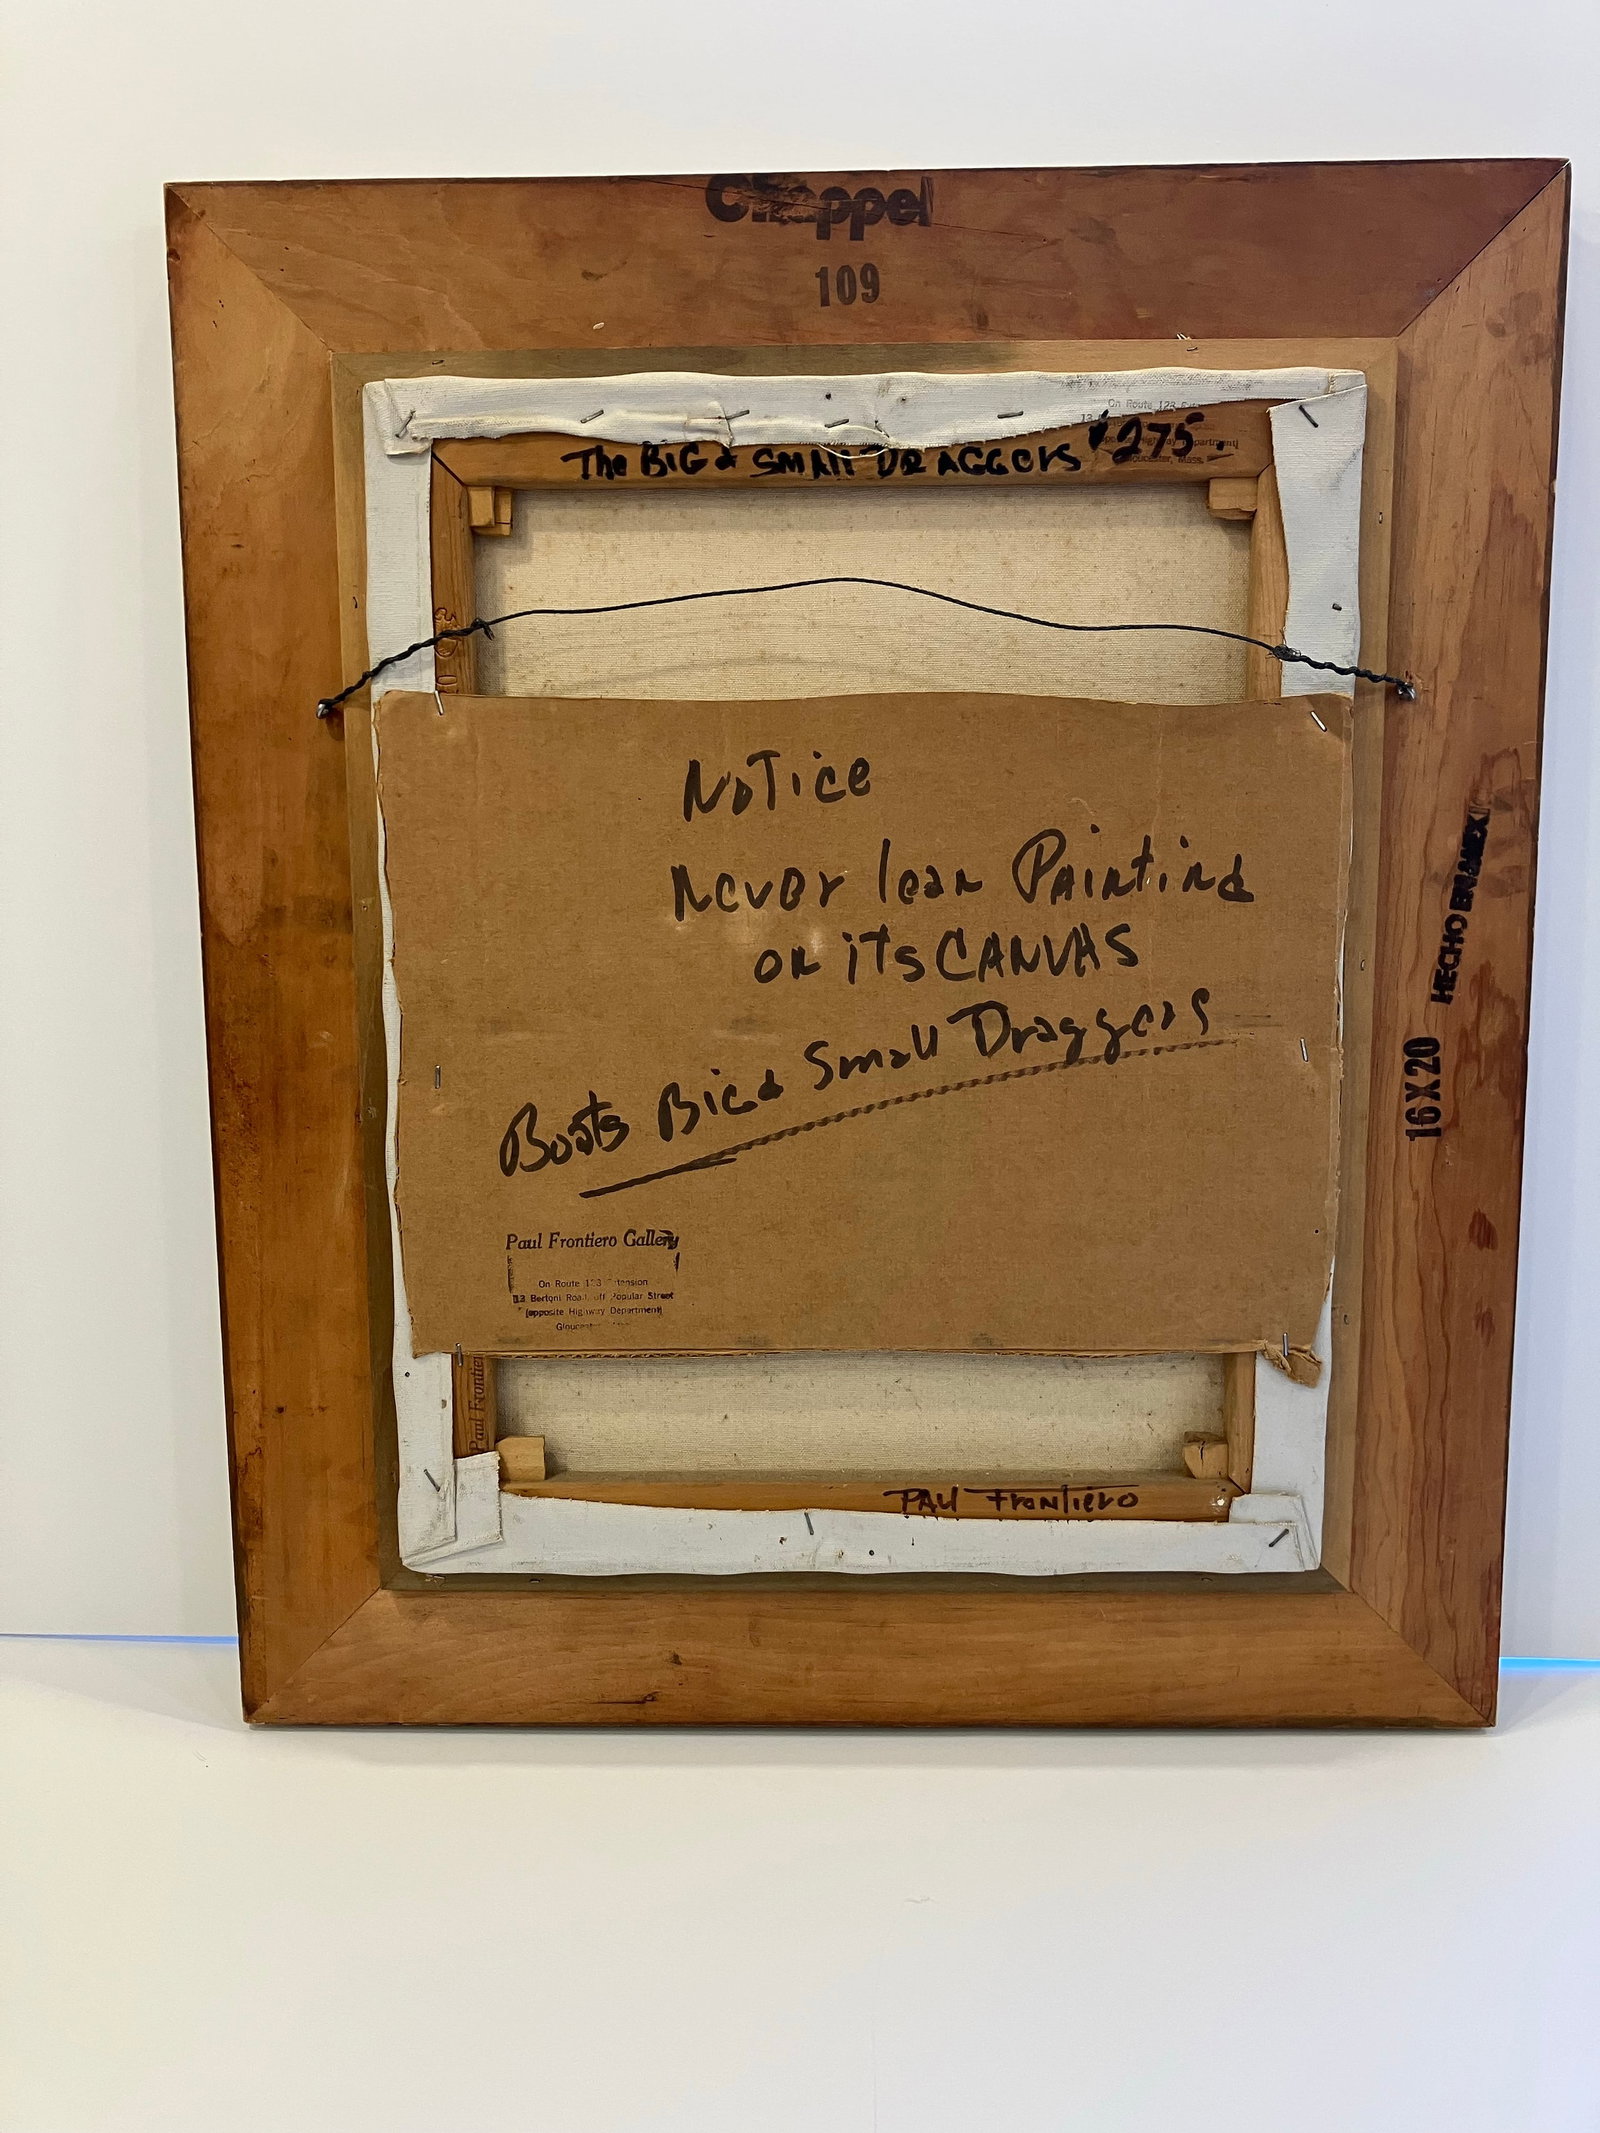 Chappel
109
On Route 128
The BIG & SMALL DRAGGERS $275.
Gloucester, Mass.
NOTICE
Never lean Painting
on its CANVAS
Boats Big & Small Draggers
Paul Frontiero Gallery
On Route 128 Extension
13 Bertoni Road, off Popular Street
(opposite Highway Department)
Paul Frontiero
PAUL FRONTIERO
16 X 20 HECHO EN MEX